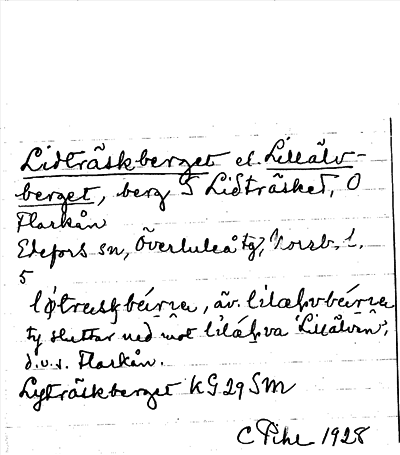 Lidträskberget el. Lillälv-
berget, berg S Lidträsket, O
Flarkån
Edefors sn, Överluleå tg, Norrb. l.
5
lø̀traskbǽrıa, äv. lılæḥvbǽrıa
ty sluttar ned mot lılǽḥva 'Lillälven',
d.v.s. Flarkån.
Lyträskberget KG 29 SM
C Pihl 1928